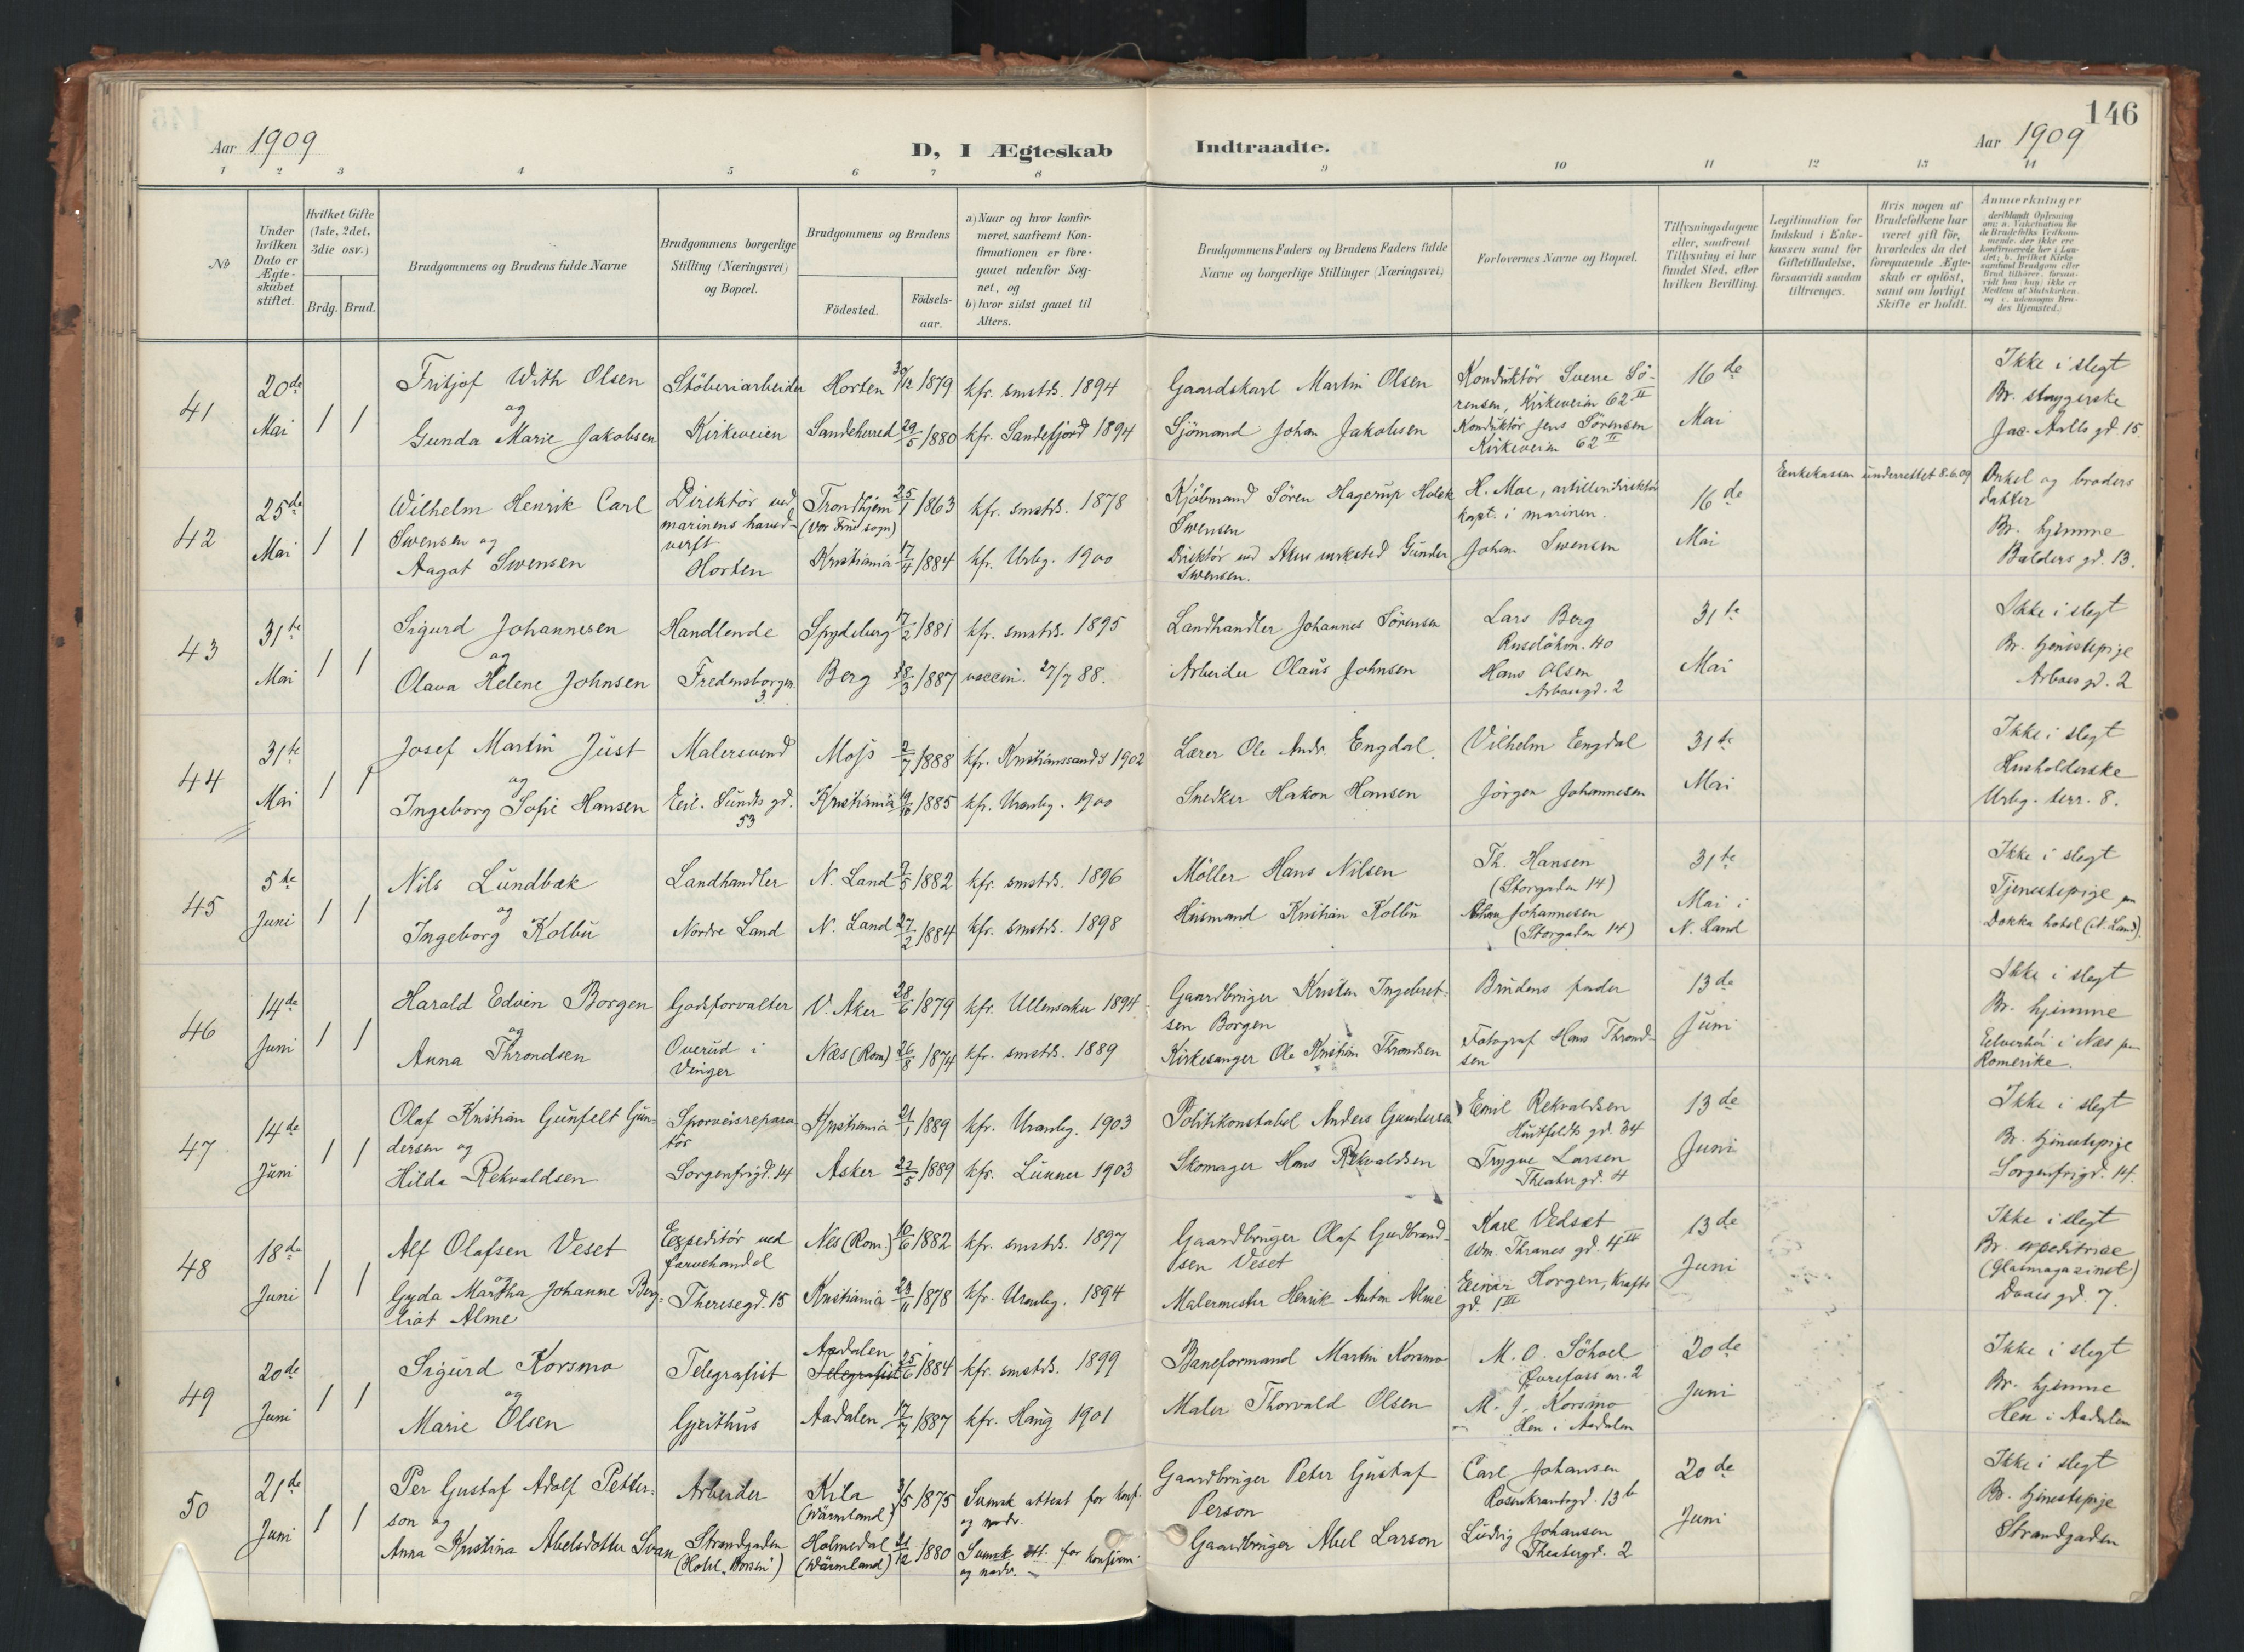 146
Aar 1909
D, I Ægteskab Indtraadte.
Aar 1909
1 2 3 4 5 6 7 8 9 10 11 12 13 14
No
Under hvilken Dato er Ægteskabet stiftet.
Hvilket Gifte (1ste, 2det, 3die osv.)
Brdg. Brud.
Brudgommens og Brudens fulde Navne
Brudgommens borgerlige Stilling (Næringsvei) og Bopæl.
Brudgommens og Brudens
Fødested. Fødselsaar.
a) Naar og hvor konfirmeret, saafremt Konfirmationen er foregaaet udenfor Sognet, og
b) hvor sidst gaaet til Alters.
Brudgommens Faders og Brudens Faders fulde Navne og borgerlige Stillinger (Næringsvei)
Forlovernes Navne og Bopæl.
Tillysningsdagene eller, saafremt Tillysning ei har fundet Sted, efter hvilken Bevilling.
Legitimation for Indskud i Enkekassen samt for Giftetilladelse, forsaavidt saadan tiltrænges.
Hvis nogen af Brudefolkene har været gift før, hvorledes da det foregaaende Ægteskab er opløst, samt om lovligt Skifte er holdt.
Anmærkninger
41
20de Mai
1 1
Fritjof With Olsen
og
Gunda Marie Jakobsen
Støberiarbeider
Kirkeveien
Horten 30/12 1879
Sandeherred 29/5 1880
kfr. smstds. 1894
kfr. Sandefjord 1894
Gaardskarl Martin Olsen
Sjömand Johan Jakobsen
Konduktör Sverre Sörensen, Kirkeveien 62 II
Konduktör Jens Sörensen
Kirkeveien 62 II
16de Mai
Ikke i slegt
Br. strygerske
Jac. Aalls gd. 15.
42
25de Mai
1 1
Wilhelm Henrik Carl
Swensen og
Aagot Swensen
Direktör ved
marinens hoved-
verft
Horten
Trondhjem 25/1 1863
(Vor Frue sogn)
Kristiania 17/4 1884
kfr. smstds. 1878
kfr. Urbg. 1900
Kjöbmand Sören Hagerup Holck
Swensen
Direktör ved Akers mek.sted Gunder
Swensen.
H. Moe, artilleridirektör
kapt. i marinen.
Johan Swensen
16de Mai
Enkekassen underrettet 8.6.09
Onkel og broders
datter
Br. hjemme
Balders gd. 13.
43
31te Mai
1 1
Sigurd Johannesen
og
Olava Helene Johnsen
Handlende
Fredensborgv.
3.
Spydeberg 17/2 1881
Berg 18/3 1887
kfr. smstds. 1895
vaccin. 27/7 88.
Landhandler Johannes Sörensen
Arbeider Olaus Johnsen
Lars Berg
Ruselökv. 40
Hans Olsen
Arboes gd. 2
31te Mai
Ikke i slegt
Br. tjenestepige
Arboes gd. 2
44
31te Mai
1 1
Josef Martin Just
og
Ingeborg Sofie Hansen
Malersvend
Eil. Sundts gd.
53
Moss 2/7 1888
Kristiania 19/10 1885
kfr. Kristianssands 1902
kfr. Uranbg. 1900
Lærer Ole Andr. Engdal.
Snedker Hakon Hansen
Vilhelm Eengdal
Jörgen Johannesen
31te Mai
Ikke i slegt
Husholderske
Urbg. terr. 8.
45
5te Juni
1 1
Nils Lundbæk
og
Ingeborg Kolbu
Landhandler
Nordre Land
N. Land 9/5 1882
N. Land 27/2 1884
kfr. smstds. 1896
kfr. smstds. 1898
Möller Hans Nilsen
Husmand Kristian Kolbu
Th. Hansen
(Storgaden 14)
Johannesen
(Storgaden 14)
31te
Mai i
N. Land
Ikke i slegt
Tjenestepige paa
Dokka hotel (N. Land).
46
14de Juni
1 1
Harald Edvin Borgen
og
Anna Throndsen
Godsforvalter
Overud i
Vinger
V. Aker 28/6 1879
Næs (Rom) 26/8 1874
kfr. Ullensaker 1894
kfr. smstds. 1889
Gaardbruger Kristen Ingebret-
sen Borgen
Kirkesanger Ole Kristian Throndsen
Brudens fader
Fotograf Hans Thrond-
sen
13de Juni
Ikke i slegt
Br. hjemme
Elverhöi i Næs paa
Romerike.
47
14de Juni
1 1
Olaf Kristian Gunfelt Gun-
dersen og
Hilda Rekvaldsen
Sporveisrepara-
tör
Sorgenfrigd. 14
Kristiania 21/1 1889
Asker 22/5 1889
kfr. Uranbg. 1903
kfr. Lunner 1903
Politikonstabel Anders Gundersen
Skomager Hans Rekvaldsen
Emil Rekvaldsen
Huitfeldts gd. 34
Trygve Larsen
Theater gd. 4
13de Juni
Ikke i slegt
Br. tjenestepige
Sorgenfrigd. 14.
48
18de Juni
1 1
Alf Olafsen Veset
og
Gyda Martha Johanne Berg-
liot Alme
Expeditör ved
farvehandel
Theresegd. 15
Nes (Rom.) 10/6 1882
Kristiania 23/11 1878
kfr. smstds. 1897
kfr. Uranbg. 1894
Gaardbruger Olaf Gudbrand-
sen Veset
Malermester Henrik Anton Alme
Karl Vedset
Wm. Thranes gd. 4 III
Einar Horgen, Krafts
gd. 1 III
13de Juni
Ikke i slegt
Br. expeditrice
(Glasmagazinet)
Daaes gd. 7.
49
20de Juni
1 1
Sigurd Korsmo
og
Marie Olsen
Telegrafist
Gjeithus
Aadalen
Telegrafist 25/6 1884
Aadalen 17/7 1887
kfr. smstds. 1899
kfr. Haug 1901
Baneformand Martin Korsmo
Maler Thorvald Olsen
M. O. Söhoel
Örefoss nr. 2
M. J. Korsmo
Hen i Aadalen
20de Juni
Ikke i slegt
Br. hjemme
Hen i Aadalen
50
21de Juni
1 1
Per Gustaf Adolf Petter-
son og
Anna Kristina Abelsdotter Svan
Arbeider
Strandgaden
(Hotel "Norsen")
Kila 3/5 1875
(Wärmland)
Holmedal 21/12 1880
(Wärmland)
Svensk attest for konf.
og nadv.
Svensk att. for konfirm.
og nadv.
Gaardbruger Peter Gustaf
Person
Gaardbruger Abel Larson
Carl Johansen
Rosenkrantzgd. 13b
Ludvig Johansen
Theatergd. 2
20de Juni
Ikke i slegt
Br. tjenestepige
Strandgaden